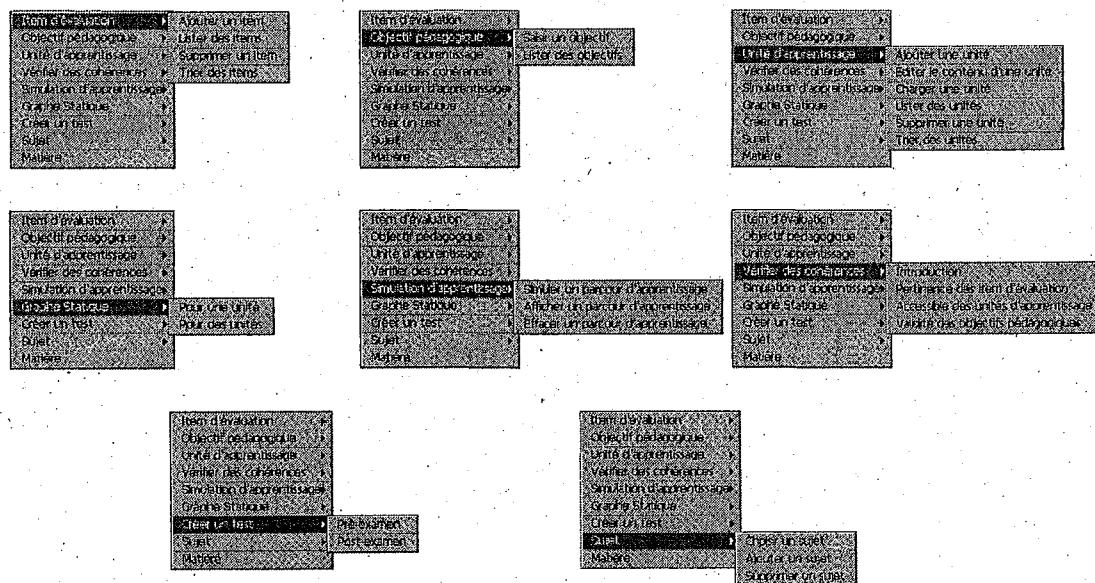 Item d'évaluation
Objectif pédagogique
Unité d'apprentissage
Vérifier des cohérences
Simulation d'apprentissage
Graphe Statique
Créer un test
Sujet
Matière
Ajouter un item
Lister des items
Supprimer un item
Trier des items
Item d'évaluation
Objectif pédagogique
Unité d'apprentissage
Vérifier des cohérences
Simulation d'apprentissage
Graphe Statique
Créer un test
Sujet
Matière
Saisir un objectif
Lister des objectifs
Item d'évaluation
Objectif pédagogique
Unité d'apprentissage
Vérifier des cohérences
Simulation d'apprentissage
Graphe Statique
Créer un test
Sujet
Matière
Ajouter une unité
Editer le contenu d'une unité
Charger une unité
Lister des unités
Supprimer une unité
Trier des unités
Item d'évaluation
Objectif pédagogique
Unité d'apprentissage
Vérifier des cohérences
Simulation d'apprentissage
Graphe Statique
Créer un test
Sujet
Matière
Pour une unité
Pour des unités
Item d'évaluation
Objectif pédagogique
Unité d'apprentissage
Vérifier des cohérences
Simulation d'apprentissage
Graphe Statique
Créer un test
Sujet
Matière
Simuler un parcour d'apprentissage
Afficher un parcour d'apprentissage
Effacer un parcour d'apprentissage
Item d'évaluation
Objectif pédagogique
Unité d'apprentissage
Vérifier des cohérences
Simulation d'apprentissage
Graphe Statique
Créer un test
Sujet
Matière
Introduction
Pertinence des item d'évaluation
Accessible des unités d'apprentissage
Validité des objectifs pédagogiques
Item d'évaluation
Objectif pédagogique
Unité d'apprentissage
Vérifier des cohérences
Simulation d'apprentissage
Graphe Statique
Créer un test
Sujet
Matière
Pré-examen
Post-examen
Item d'évaluation
Objectif pédagogique
Unité d'apprentissage
Vérifier des cohérences
Simulation d'apprentissage
Graphe Statique
Créer un test
Sujet
Matière
Choisir un sujet
Ajouter un sujet
Supprimer un sujet